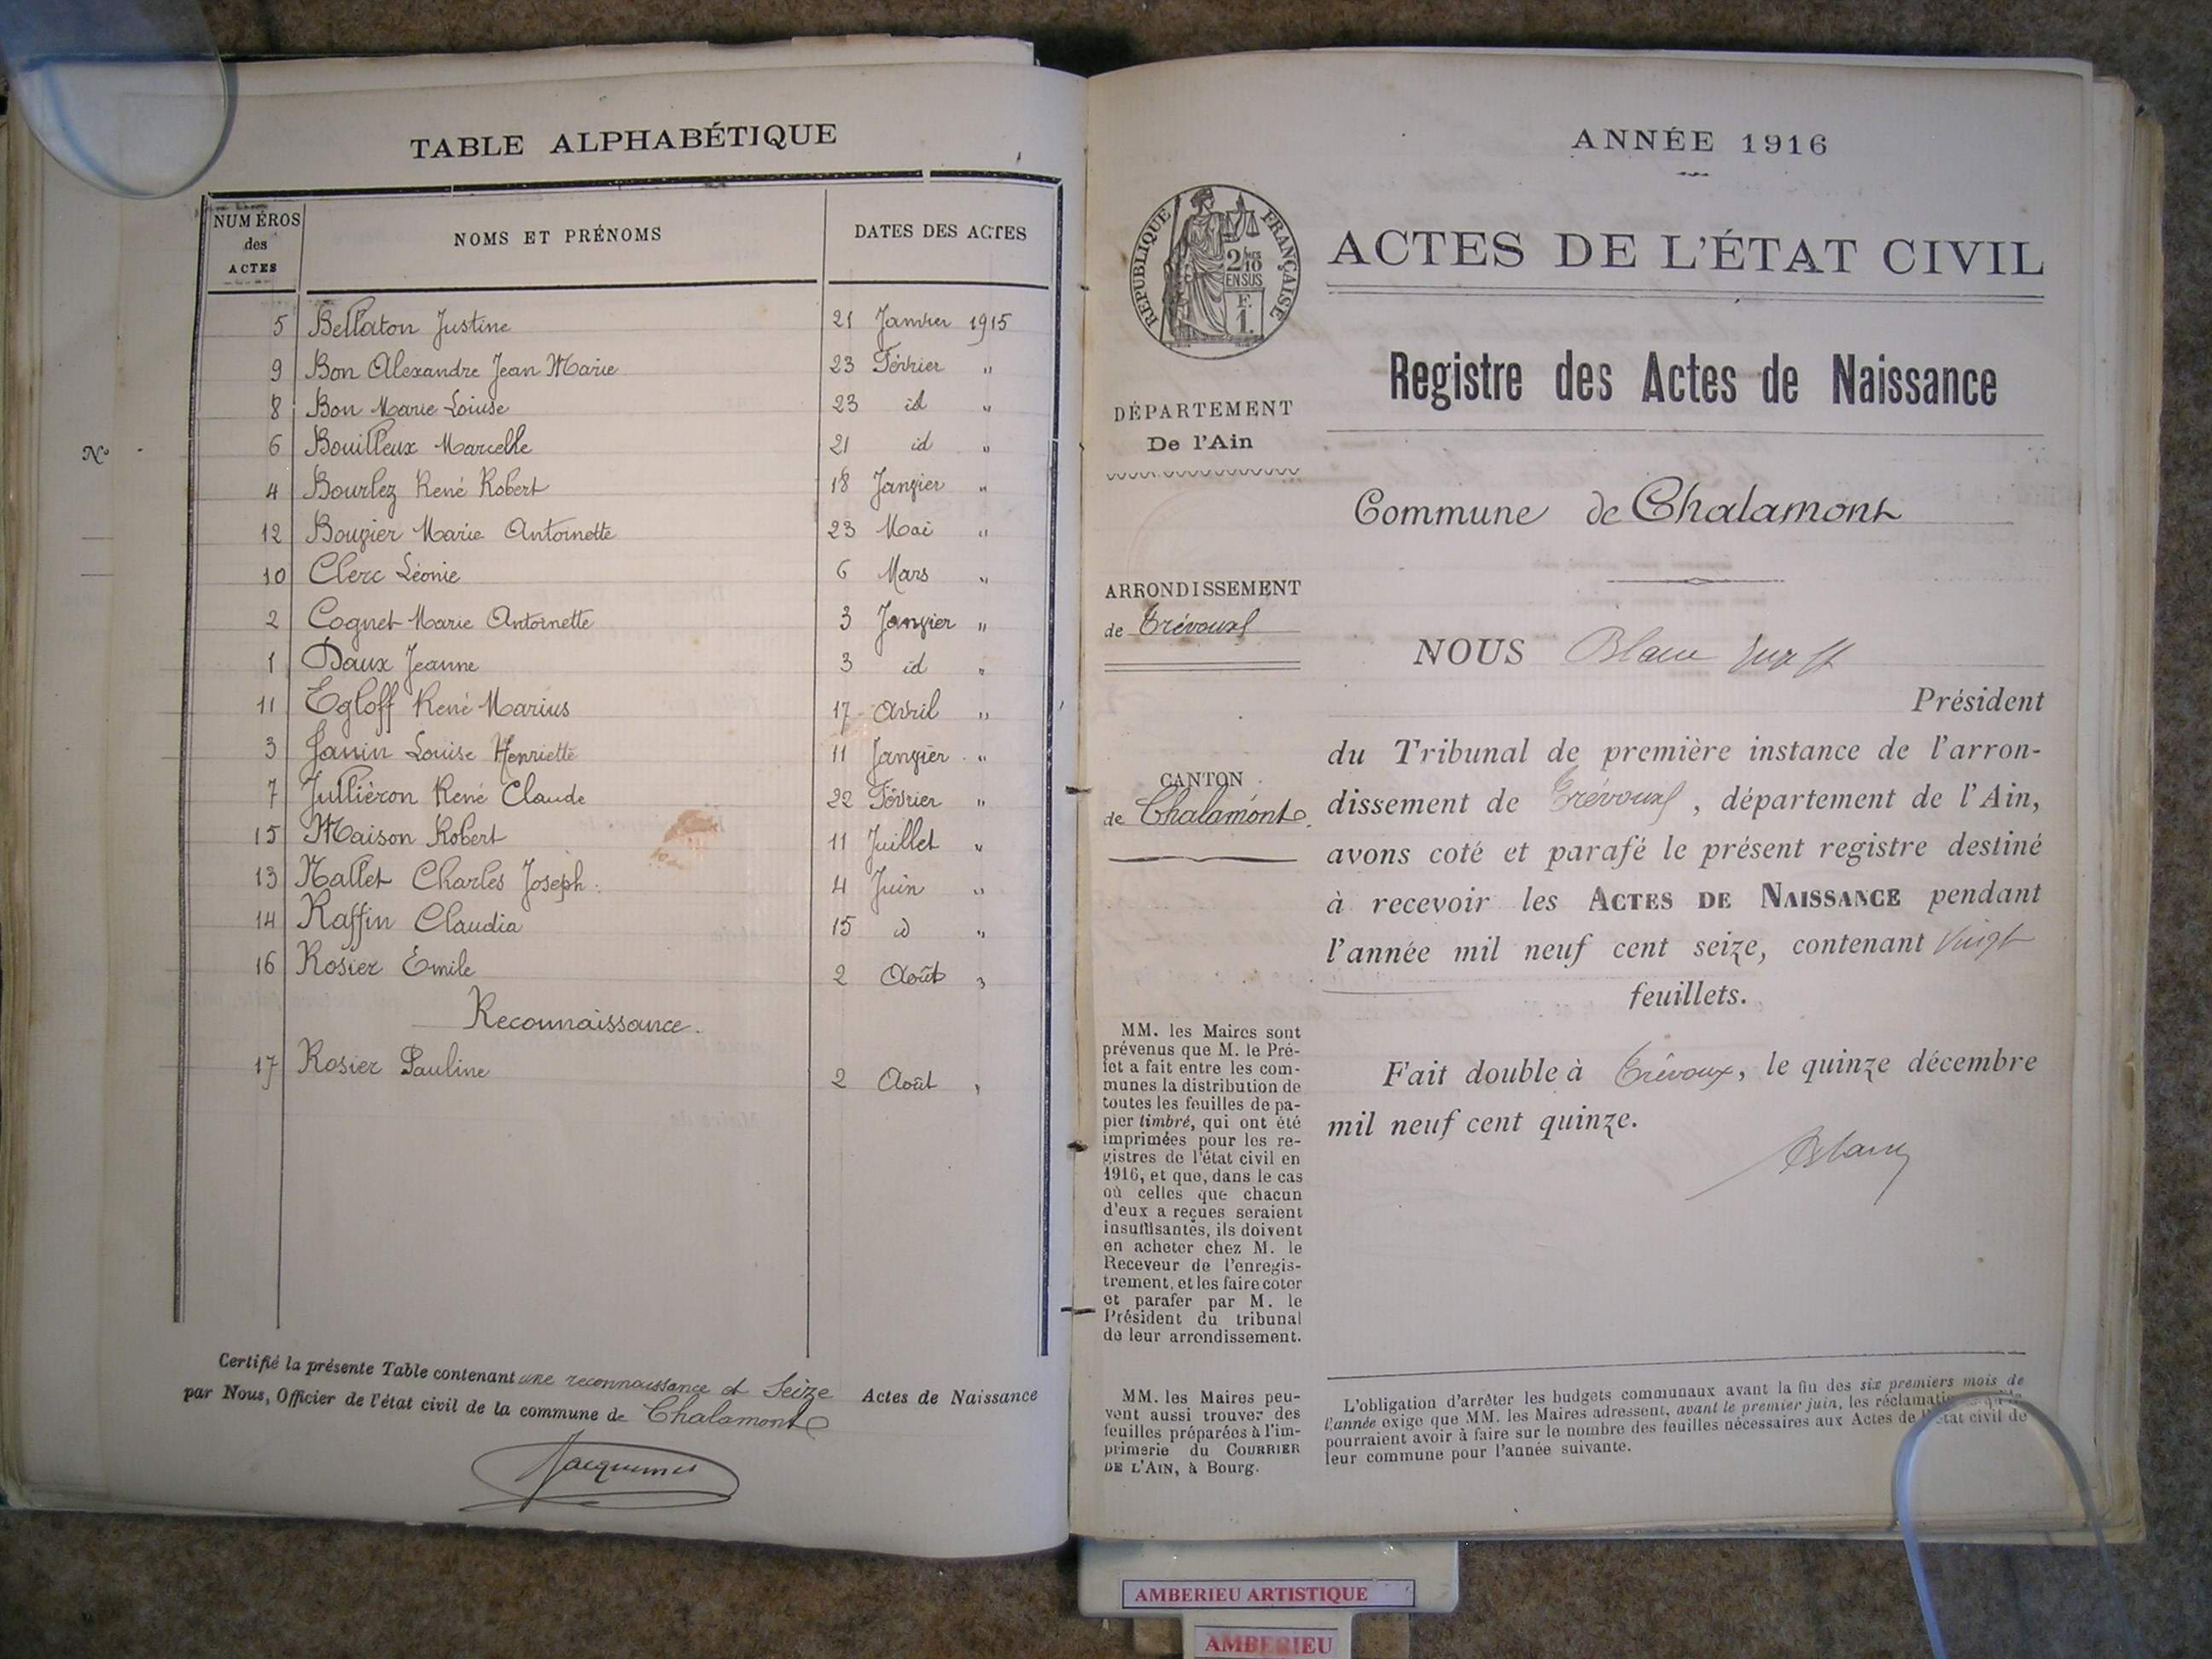 TABLE ALPHABÉTIQUE
NUMÉROS des ACTES
NOMS ET PRÉNOMS
DATES DES ACTES
5 Bellaton Justine 21 Janvier 1915
9 Bon Alexandre Jean Marie 23 Février "
8 Bon Marie Louise 23 id "
6 Bouilleux Marcelle 21 id "
4 Bourlez René Robert 18 Janvier "
12 Bouvier Marie Antoinette 23 Mai "
10 Clerc Léonie 6 Mars "
2 Cognet Marie Antoinette 3 Janvier "
1 Daux Jeanne 3 id "
11 Egloff René Marius 17 Avril "
3 Janin Louise Henriette 11 Janvier "
7 Jullièron René Claude 22 Février "
15 Maison Robert 11 Juillet "
13 Nallet Charles Joseph 4 Juin "
14 Raffin Claudia 15 id "
16 Rosier Emile 2 Août "
Reconnaissance.
17 Rosier Pauline 2 Août "
Certifié la présente Table contenant une reconnaissance et Seize Actes de Naissance
par Nous, Officier de l'état civil de la commune de Chalamont
No
ANNÉE 1916
RÉPUBLIQUE FRANÇAISE
2/10
EN SUS
F.
1.
ACTES DE L'ÉTAT CIVIL
Registre des Actes de Naissance
DÉPARTEMENT
De l'Ain
Commune de Chalamont
ARRONDISSEMENT
de Trévoux
CANTON
de Chalamont
NOUS Blanc
Président
du Tribunal de première instance de l'arron-
dissement de Trévoux, département de l'Ain,
avons coté et parafé le présent registre destiné
à recevoir les ACTES DE NAISSANCE pendant
l'année mil neuf cent seize, contenant Vingt
feuillets.
Fait double à Trévoux, le quinze décembre
mil neuf cent quinze.
Blanc
MM. les Maires sont
prévenus que M. le Pré-
fet a fait entre les com-
munes la distribution de
toutes les feuilles de pa-
pier timbré, qui ont été
imprimées pour les re-
gistres de l'état civil en
1916, et que, dans le cas
où celles que chacun
d'eux a reçues seraient
insuffisantes, ils doivent
en acheter chez M. le
Receveur de l'enregis-
trement, et les faire coter
et parafer par M. le
Président du tribunal
de leur arrondissement.
MM. les Maires peu-
vent aussi trouver des
feuilles préparées à l'im-
primerie du COURRIER
DE L'AIN, à Bourg.
L'obligation d'arrêter les budgets communaux avant la fin des six premiers mois de
l'année exige que MM. les Maires adressent, avant le premier juin, les réclamations qu'ils
pourraient avoir à faire sur le nombre des feuilles nécessaires aux Actes de l'état civil de
leur commune pour l'année suivante.
AMBERIEU ARTISTIQUE
AMBERIEU